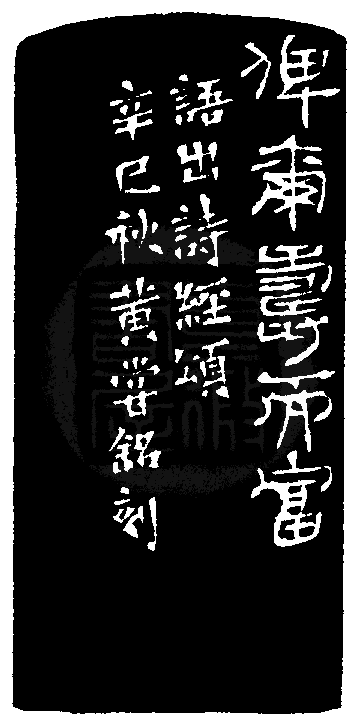 俾爾壽而富
語出詩經頌
辛巳秋黃嘗銘刻